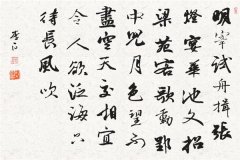 明宰試舟楫張
燈宴華池文招
梁苑客歌動郢
中兒月色望不
盡空天交相宜
令人欲泛海只
待長風吹